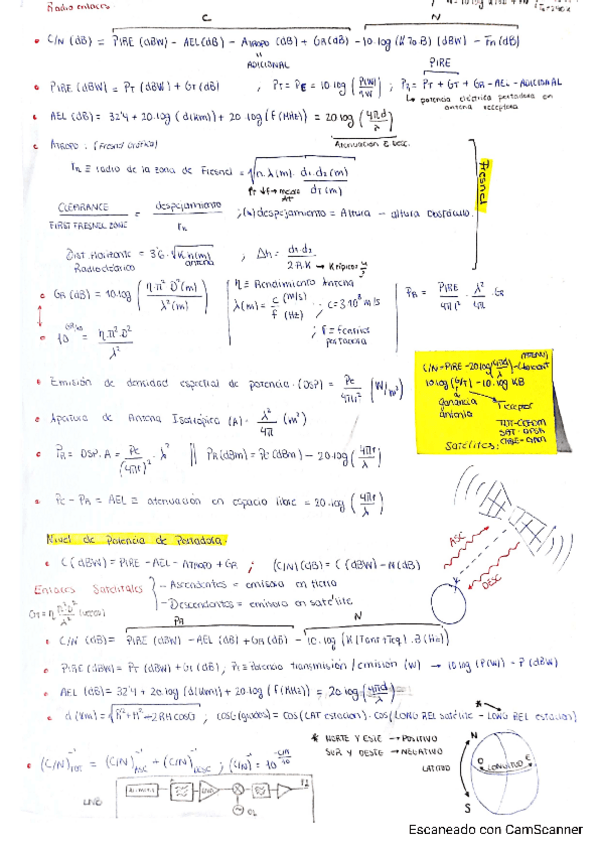 Radio enlaces.
C N
• C/N (dB) = PIRE (dBW) - AEL(dB) - ATROPO (dB) + GR(dB) - 10·log (K·To·B) (dBW) - Fn(dB)
ADICIONAL PIRE
• PIRE (dBW) = PT (dBW) + GT (dB) , PT = PE = 10·log (P(W)/1W) ; PR = PT + GT + GR - AEL - ADICIONAL
↳ potencia eléctrica portadora en antena receptora
• AEL (dB) = 32'4 + 20·log (d(km)) + 20·log (f(MHz)) = 20log (4πd/λ)
• ATROPO : (Fresnel
rn ≡ radio de la zona de Fresnel = √(n·λ(m)· d1·d2(m)/dT(m))
Fresnel
CLEARANCE/FIRST FRESNEL ZONE = despejamiento/rn ; (m) despejamiento = Altura - altura obstáculo.
DIST. Horizonte Radioeléctrico = 3'6·√(K·h(m)) antena , Δh = d1·d2/2·R·K → K típico = 4/3
• GR (dB) = 10·log (η·π²·D²(m)/λ²(m))
η ≡ Rendimiento Antena
λ(m) = c (m/s)/f (Hz) ; c=3·10⁸ m/s
; f ≡ frecuencia portadora
PR = PIRE/4πr² · λ²/4π · GR
• 10^(GR/10) = η·π²·D²/λ²
C/N = PIRE - 20log(4πd/λ)
10·log (G/T) - 10·log KB
ganancia antena
receptor
Satélites.
• Emisión de densidad espectral de potencia (DSP) = Pe/4πr² (W/m²)
• Apertura de Antena Isotrópica (A) = λ²/4π (m²)
• PR = DSP·A = Pe/(4πr)² · λ² || PR(dBm) = Pe (dBm) - 20·log (4πr/λ)
• Pe - PR = AEL ≡ atenuación en espacio libre = 20·log (4πr/λ)
Nivel de Potencia de Portadora.
• C (dBW) = PIRE - AEL - ATROPO + GR ; (C/N)(dB) = C (dBW) - N(dB)
ASC
DESC
Enlaces Satelitales
- Ascendentes = emisora en tierra
- Descendentes = emisora en satélite
GT = η π²D²/λ² (veces)
PR N
• C/N (dB) = PIRE (dBW) - AEL (dB) + GR (dB) - 10·log (K(Tant+Teq)·B(Hz))
• PIRE (dBW) = PT (dBW) + GT (dB), PT = Potencia transmisión / emisión (W) → 10log (P(W)) = P (dBW)
• AEL (dB) = 32'4 + 20·log (d(km)) + 20·log (f(MHz)) = 20log (4πd/λ)
; cosG(grados) = cos(LAT estacion)·cos(LONG REL satélite - LONG REL estacion)
* NORTE Y ESTE → POSITIVO
SUR Y OESTE → NEGATIVO
• (C/N)⁻¹TOT = (C/N)⁻¹ASC + (C/N)⁻¹DESC ; (C/N) = 10^(C/N/10)
LATITUD
N
O LONGITUD E
S
LNB
OL
Escaneado con CamScanner